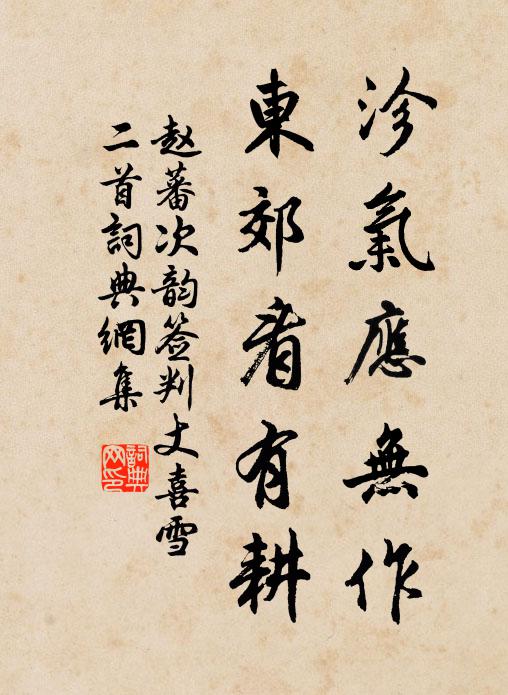 沴氣應無作
東郊看有耕
赵蕃次韵簽判丈喜雪
二首詞典網集
詞典网印